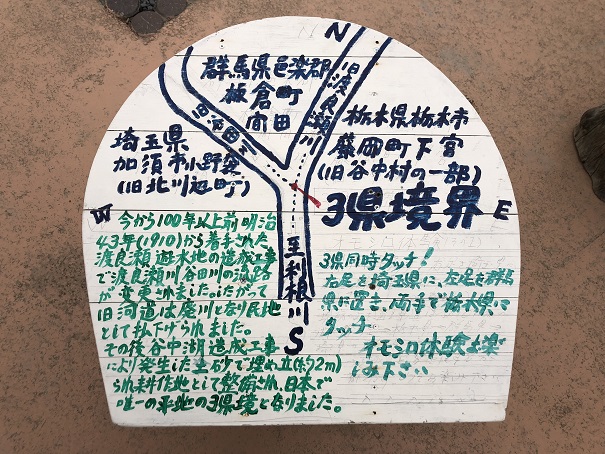 N
群馬県邑楽郡
板倉町
間田
旧渡良瀬川
旧谷田川
埼玉県
加須市小野袋
(旧北川辺町)
栃木県栃木市
藤岡町下宮
(旧谷中村の一部)
3県境界
W
E
至利根川
S
今から100年以上前明治
43年(1910)から着手された
渡良瀬遊水地の造成工事
で渡良瀬川谷田川の流路
が変更されました。したがって
旧河道は廃川となり民地
として払下げられました。
その後谷中湖造成工事
により発生した土砂で埋め立(約2m)
られ耕作地として整備され、日本で
唯一の平地の3県境となりました。
3県同時タッチ!
右足を埼玉県に、左足を群馬
県に置き、両手で栃木県に
タッチ
オモシロ体験お楽
しみ下さい